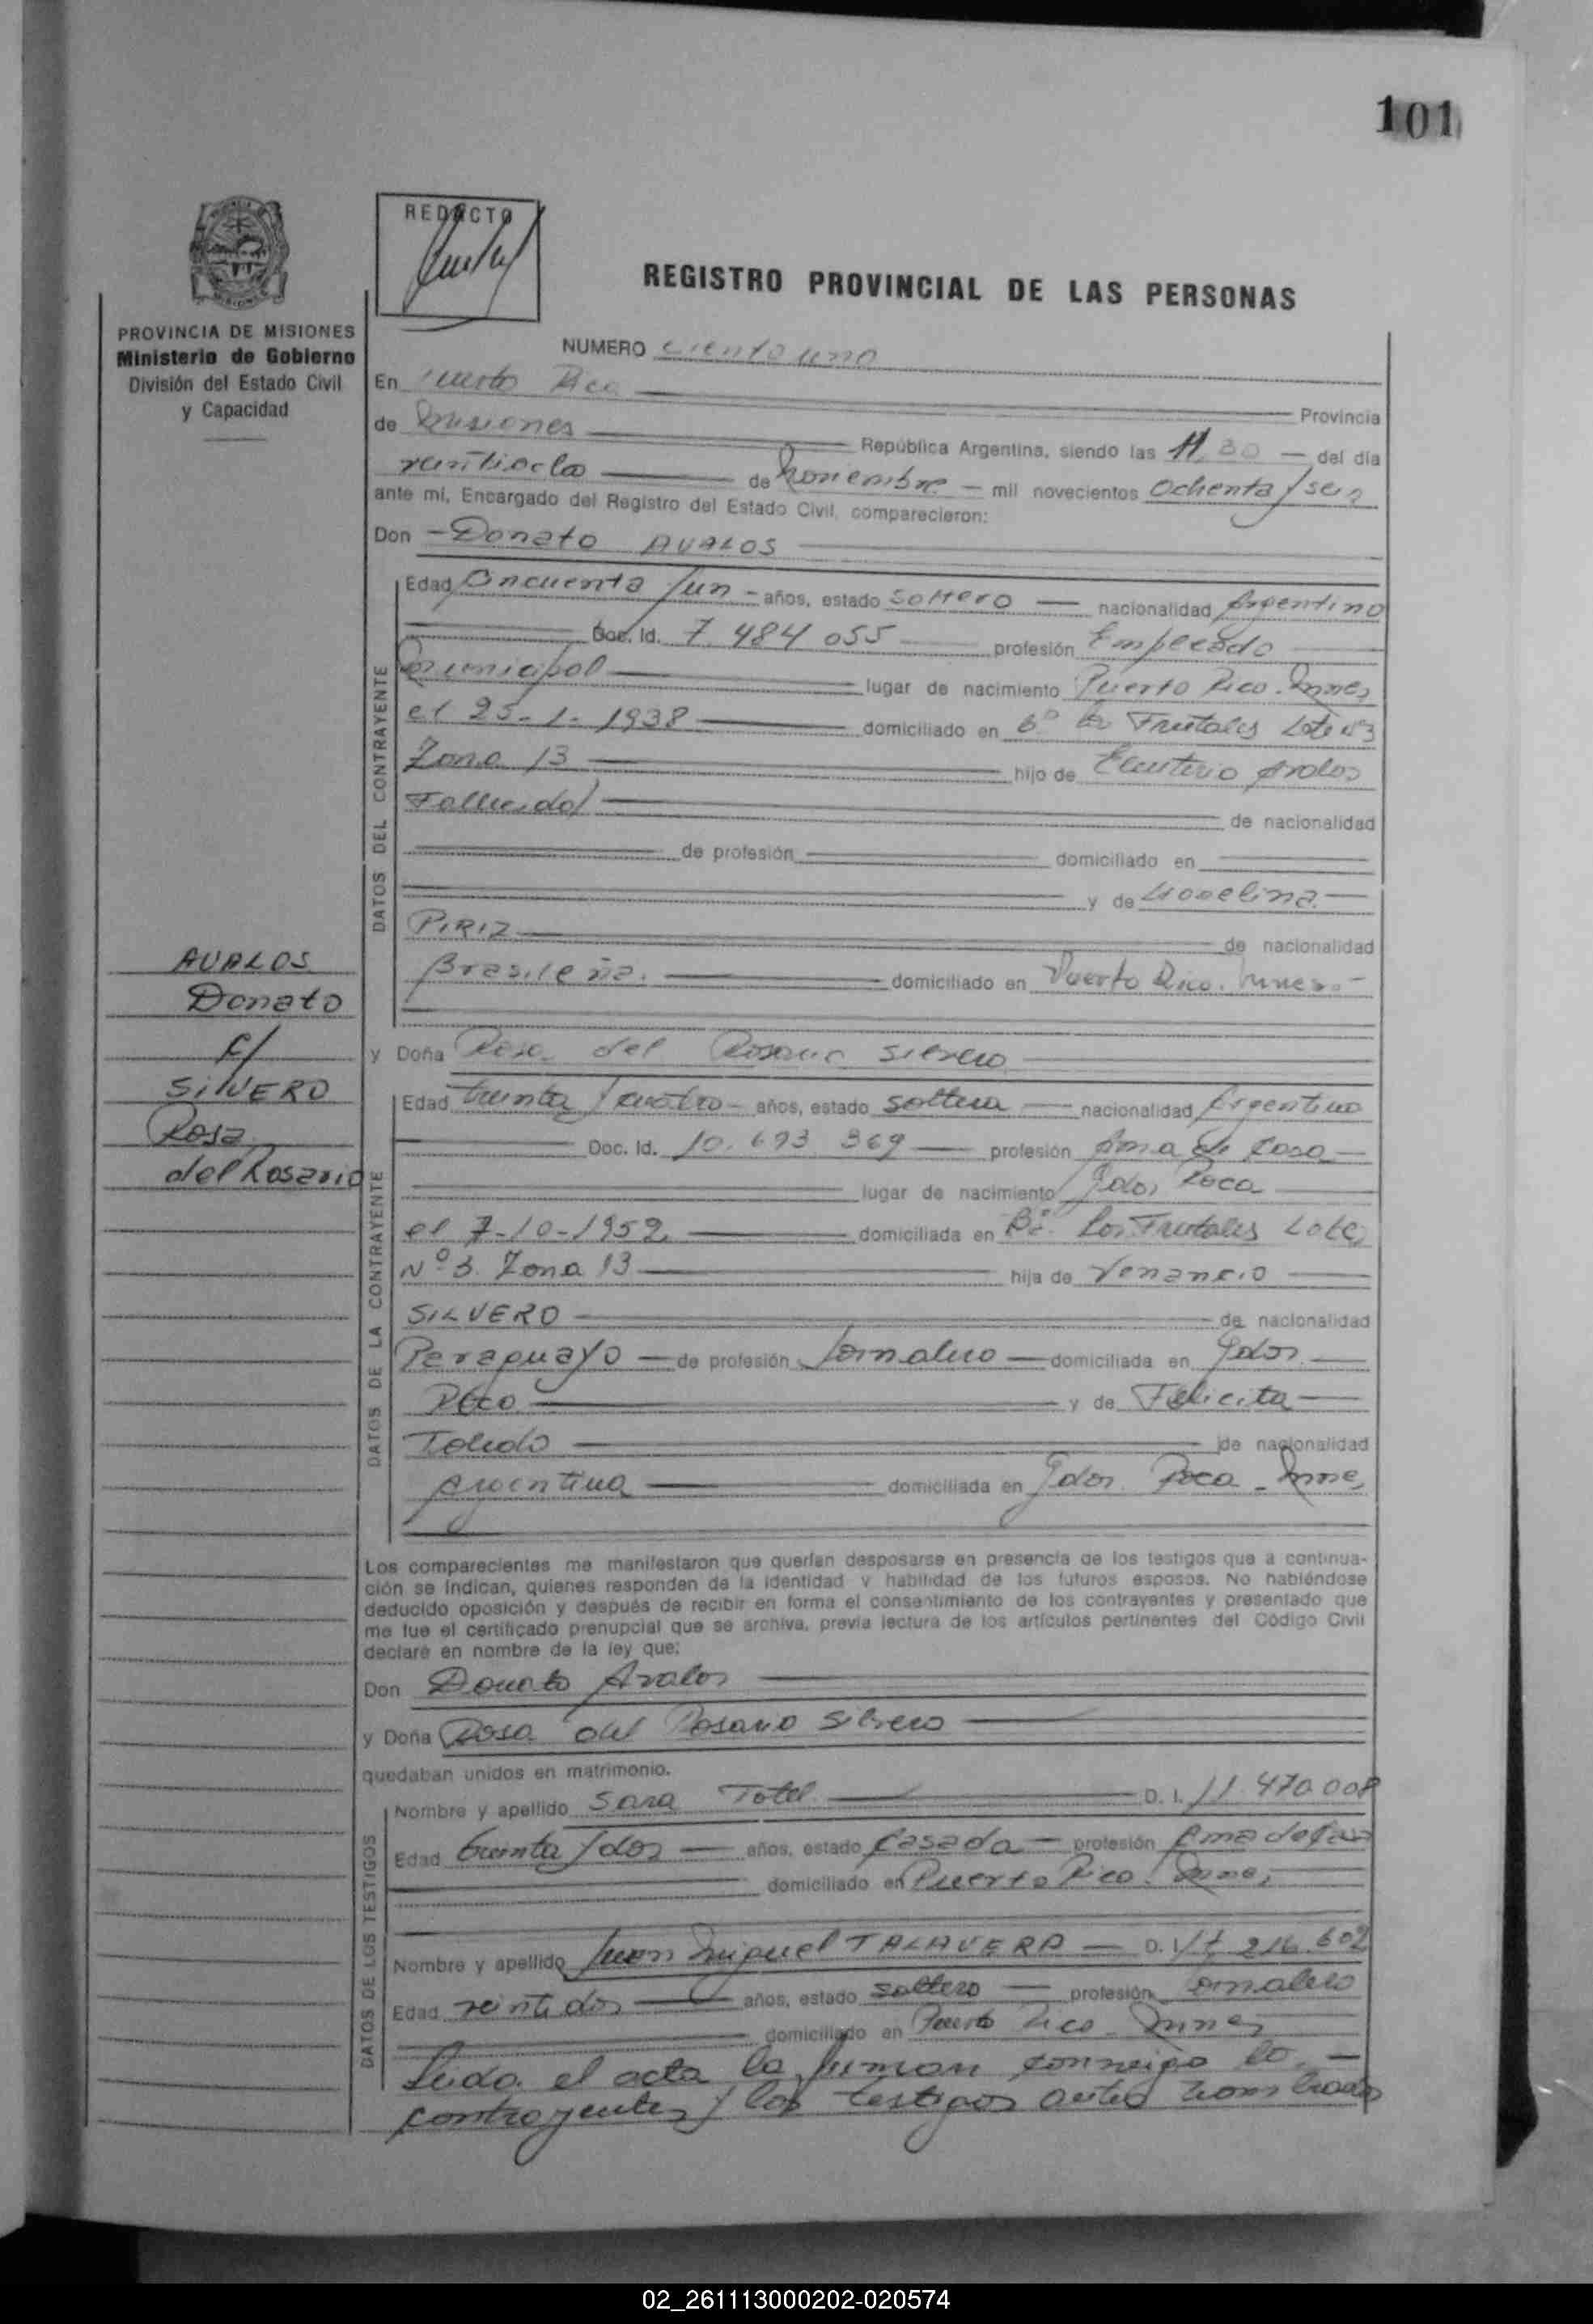 101
REDACTO
REGISTRO PROVINCIAL DE LAS PERSONAS
PROVINCIA DE MISIONES
Ministerio de Gobierno
División del Estado Civil
y Capacidad
NUMERO ciento uno
En Puerto Rico Provincia
de Misiones República Argentina, siendo las 11,30 del día
ventiocho de Noviembre mil novecientos Ochenta y seis
ante mí, Encargado del Registro del Estado Civil, comparecieron:
Don Donato AVALOS
DATOS DEL CONTRAYENTE
Edad Cincuenta y un años, estado Soltero nacionalidad Argentino
Doc. Id. 7.484.055 profesión Empleado
Municipal lugar de nacimiento Puerto Rico. Mnes
el 25-1-1938 domiciliado en Bº Los Frutales Lote nº3
Zona 13 hijo de Eleuterio Avalos
Fallecido/ de nacionalidad
de profesión domiciliado en
y de
PIRIZ de nacionalidad
Brasileña. domiciliado en Puerto Rico. Mnes.-
y Doña Rosa del Rosario Silvero
DATOS DE LA CONTRAYENTE
Edad treinta y cuatro años, estado soltera nacionalidad Argentina
Doc. Id. 10.693.369 profesión Ama de Casa
lugar de nacimiento Gdor Roca
el 7-10-1952 domiciliada en Bº. Los Frutales Lote
Nº 3. Zona 13 hija de Venancio
SILVERO de nacionalidad
Paraguayo de profesión Jornalero domiciliada en Gdor.
Roca y de Felicita
Toledo de nacionalidad
Argentina domiciliada en Gdor. Roca - Mnes
AVALOS
Donato
c/
SILVERO
Rosa
del Rosario
Los comparecientes me manifestaron que querían desposarse en presencia de los testigos que a continua-
ción se indican, quienes responden de la identidad y habilidad de los futuros esposos. No habiéndose
deducido oposición y después de recibir en forma el consentimiento de los contrayentes y presentado que
me fue el certificado prenupcial que se archiva, previa lectura de los artículos pertinentes del Código Civil
declaré en nombre de la ley que:
Don Donato Avalos
y Doña Rosa del Rosario Silvero
quedaban unidos en matrimonio.
DATOS DE LOS TESTIGOS
Nombre y apellido Sara D. I. 11.470.008
Edad treinta y dos años, estado Casada profesión Ama de Casa
domiciliado en Puerto Rico. Mnes
Nombre y apellido Juan Miguel TALAVERA D. I. 216.602
Edad veintidos años, estado soltero profesión Jornalero
domiciliado en Puerto Rico - Mnes
Leida el acta la firman conmigo los
contrayentes y los testigos antes nombrados
02_261113000202-020574